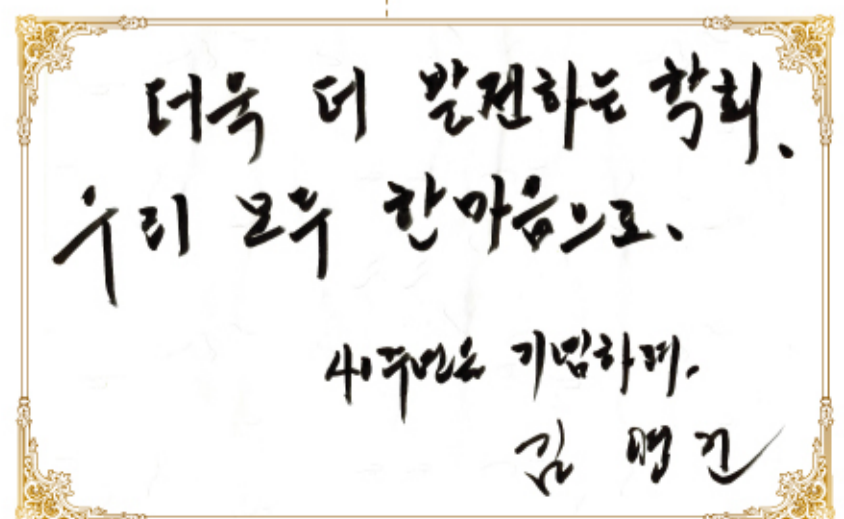 더욱 더 발전하는 학회.
우리 모두 한마음으로.
40주년을 기념하며.
김 명 진